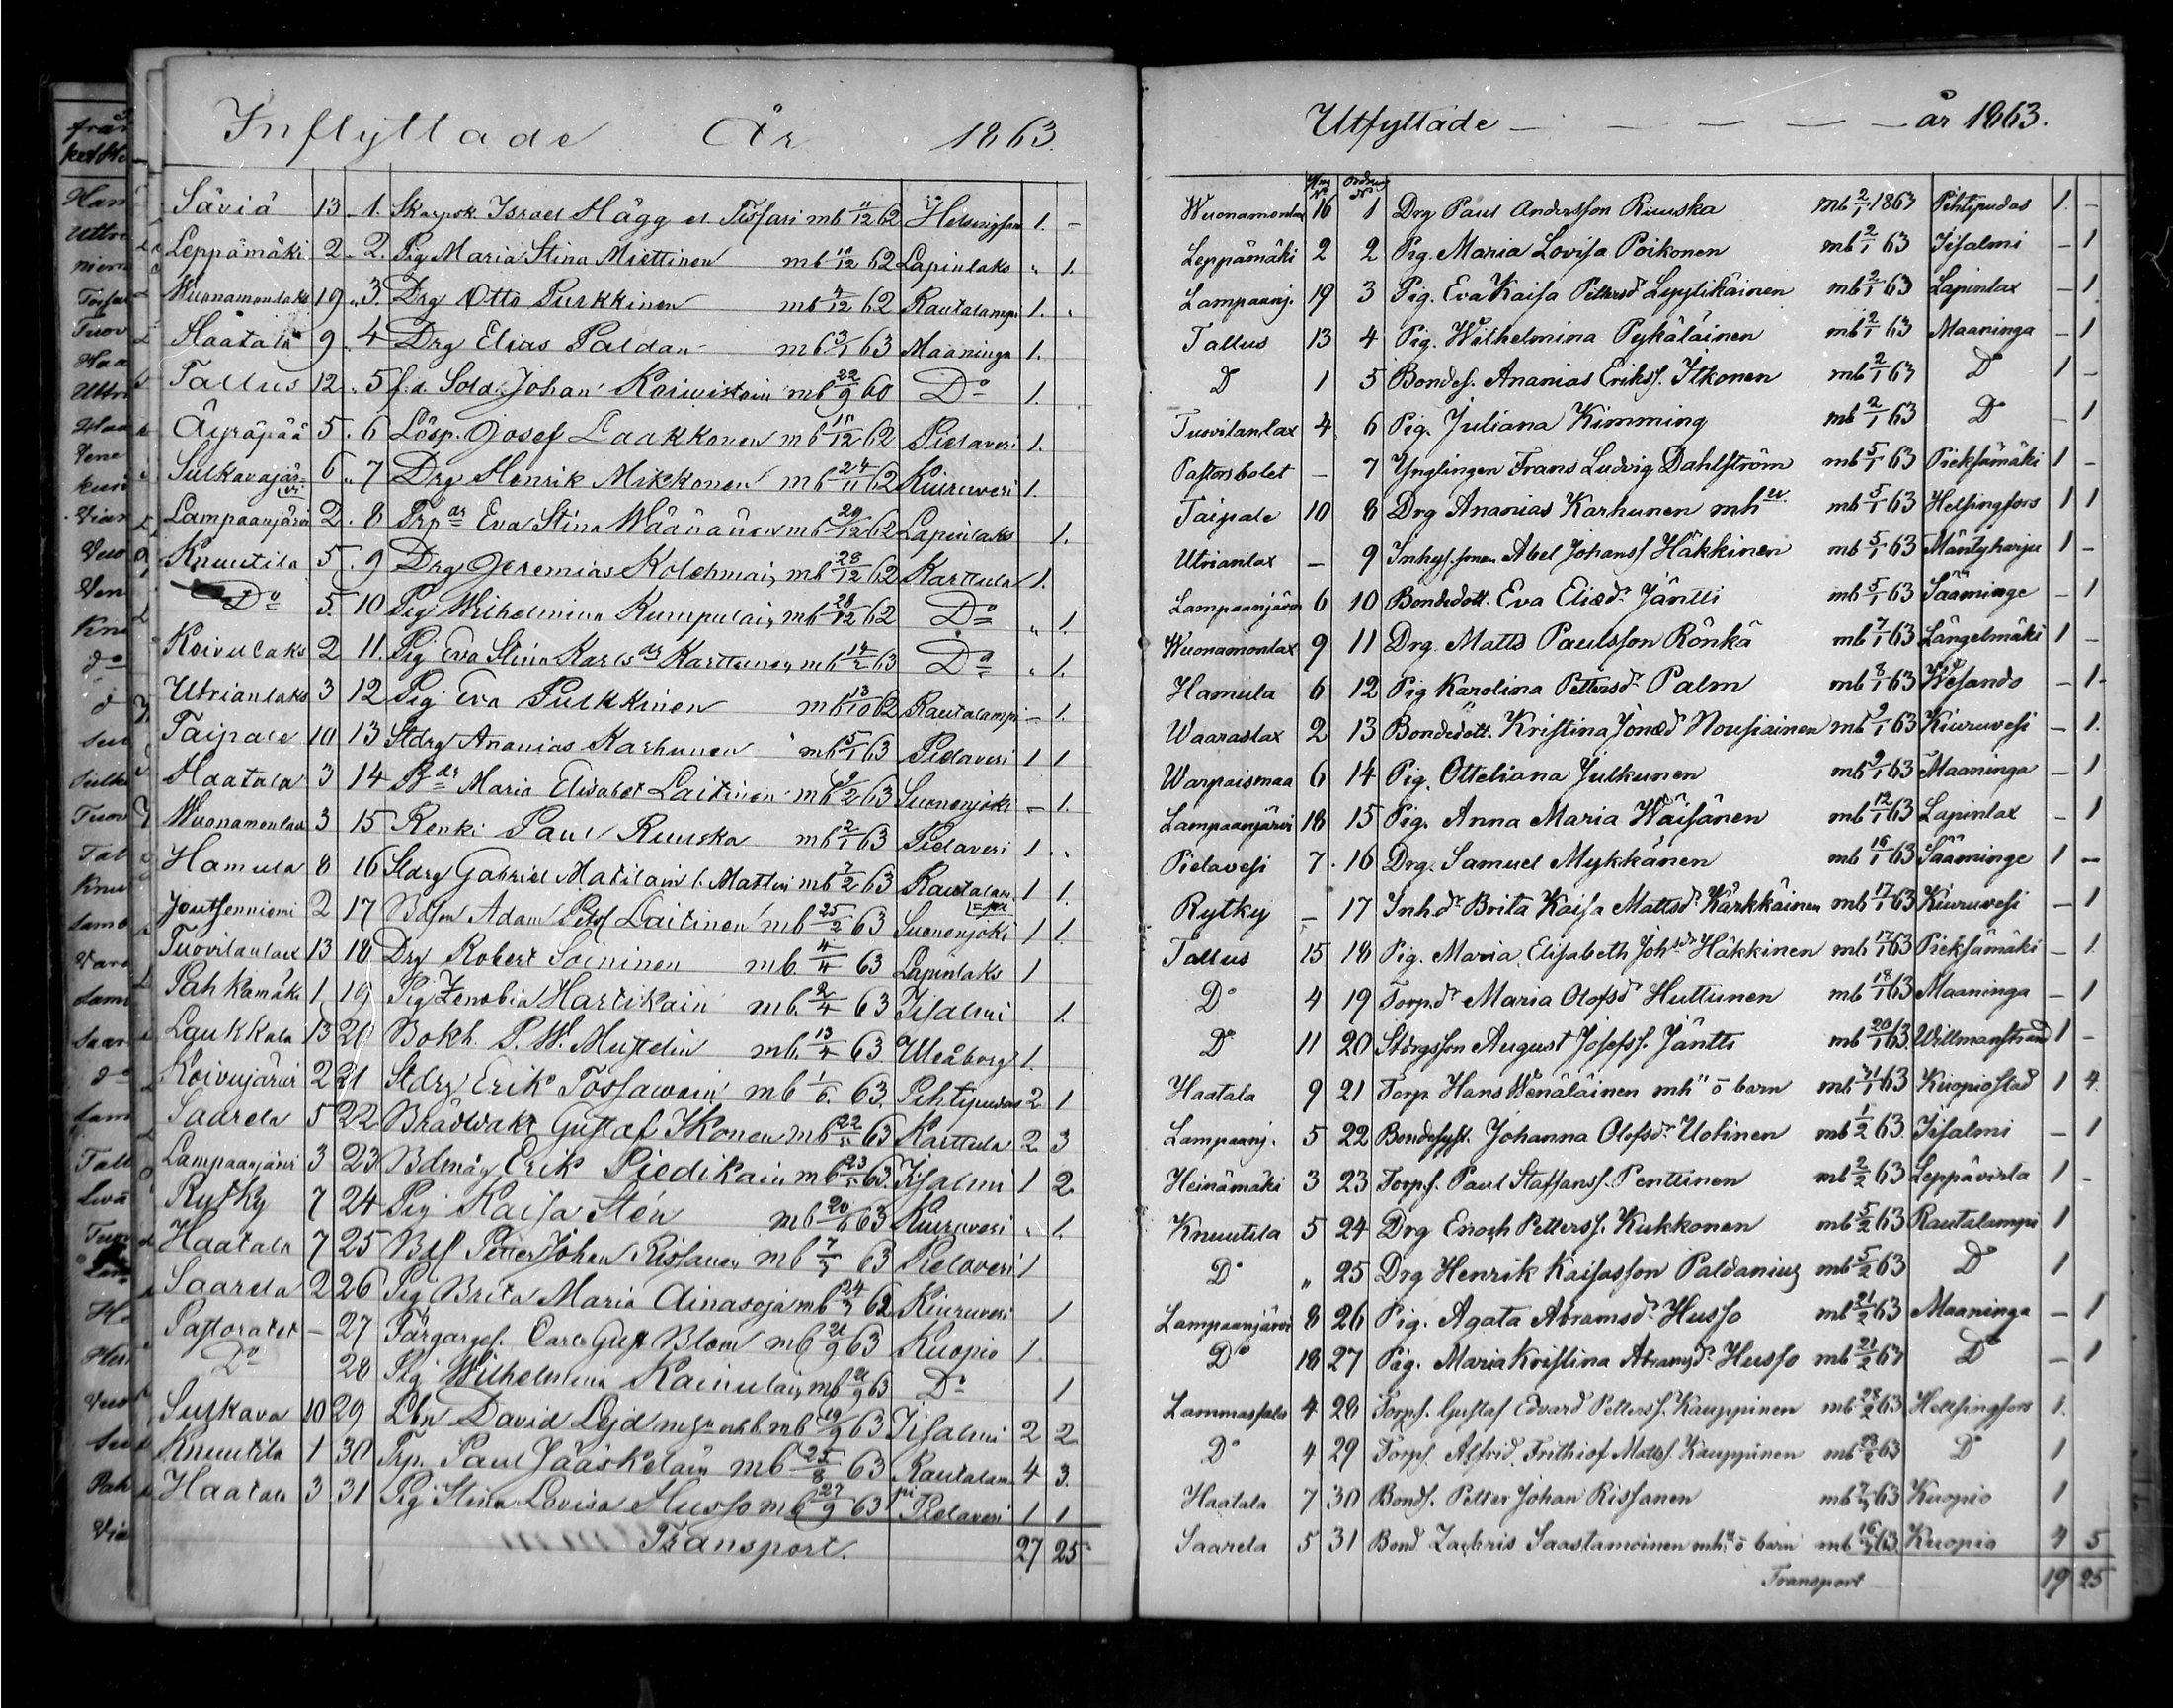 Inflyttade År 1863.
Säviä 13. 1. Skarpsk. Israel Hägg mb 11/12 62 Helsingfors 1. -
Leppämäki 2. 2. Pig Maria Stina Miettinen mb 10/12 62 Lapinlaks " 1.
Wuonamonlaks 19. 3. Drg Otto Purkkinen mb 4/12 62 Rautalampi 1.
Haatala 9. 4 Drg Elias Paldan mb 3/1 63 Maaninga 1.
Tallus 12. 5 f.d. Sold. Johan Koivistoin mb 22/9 60 Do 1.
Äyräpää 5. 6 Lösp. Josef Laakkonen mb 15/12 62 Pielavesi 1.
Sulkavajärvi 6. 7 Drg Henrik Mikkonen mb 24/11 62 Kiuruvesi 1.
Lampaanjärvi 2. 8 Trp dr Eva Stina Wäänänen mb 29/12 62 Lapinlaks 1.
Knuutila 5. 9 Drg Jeremias Kolehmai, mb 28/12 62 Karttula 1.
Do 5. 10 Pig Wilhelmina Kumpulai, mb 28/12 62 Do " 1.
Koivulaks 2 11. Pig Eva Stina Karls dr Karttunen mb 14/2 63 Do " 1.
Utrianlaks 3 12 Pig Eva Pulkkinen mb 13/10 62 Rautalampi - 1.
Taipale 10 13 Stdrg Ananias Karhunen mb 5/1 63 Pielavesi 1 1
Haatala 3 14 B dr Maria Elisabet Laitinen mb 9/2 63 Suonenjoki - 1.
Wuonamonlax 3 15 Renki Paul Ruuska mb 2/1 63 Pielavesi 1 "
Hamula 8 16 Stdrg Gabriel Matilain l. Mattin mb 7/2 63 Rautalam 1 1.
Joutsenniemi 2 17 Bdson Adam Petr Laitinen mb 25/2 63 Suonenjoki 1 1.
Tuovilanlax 13 18 Drg Robert Soininen mb. 4/4 63 Lapinlaks 1
Pahkamäki 1 19 Pig Zenobia Hartikain mb. 2/4 63 Iisalmi 1.
Laukkala 13 20 Bokh. P. W. Mustelin mb. 13/4 63 Uleåborg 1.
Koivujärvi 2 21 Stdrg Erik Tossawain mb 1/6 63. Pihtipudas 2 1
Saarela 5 22 Brådwakt Gustaf Ikonen mb 22/5 63 Karttula 2 3
Lampaanjärvi 3 23 Bdmåg Erik Piedikain mb 23/5 63. Iisalmi 1 2
Rytky 7 24 Pig Kaisa Stén mb 20/6 63 Kiuruvesi " 1.
Haatala 7 25 Bds Petter Johan Rissanen mb 7/3 63 Pielavesi 1
Saarela 2 26 Pig Brita Maria Ainasoja mb 24/3 62 Kiuruvesi 1
Pastoratet - 27 Färgarges. Carl Gust Blom mb 21/9 63 Kuopio 1.
Do 28 Pig Wilhelmina Kainulain mb 21/9 63 Do 1
Sulkava 10 29 Lbn David Lejd mb 19/9 63 Iisalmi 2 2
Knuutila 1 30 Trp. Paul Jääskeläin mb 25/8 63 Rautalampi 4 3.
Haatala 3 31 Pig Stina Lovisa Husso mb 27/9 63 Pielavesi 1 1
Transport. 27 25
Utflyttade - - - - - år 1863.
Hem No Ordng No
Wuonamonlax 16 1 Drg Paul Andersson Ruuska mb 2/1 1863 Pihtipudas 1. -
Leppämäki 2 2 Pig. Maria Lovisa Poikonen mb 2/1 63 Iisalmi - 1
Lampaanj. 19 3 Pig. Eva Kaisa Pettersd. Lyytikäinen mb 2/1 63 Lapinlax - 1
Tallus 13 4 Pig. Wilhelmina Pykäläinen mb 2/1 63 Maaninga - 1
D 1 5 Bondes. Ananias Eriks. Itkonen mb 2/1 63 D 1 -
Tuovilanlax 4 6 Pig. Juliana Kimming mb 2/1 63 D - 1
Pastorsbolet - 7 Ynglingen Frans Ludvig Dahlström mb 5/1 63 Pieksämäki 1 -
Taipale 10 8 Drg Ananias Karhunen mhu mb 5/1 63 Helsingfors 1 1
Utrianlax - 9 Inhys.sonen Abel Johanss Häkkinen mb 5/1 63 Mäntyharju 1 -
Lampaanjärvi 6 10 Bondedott. Eva Eliæd. Jäntti mb 5/1 63 Sääminge - 1
Wuonamonlax 9 11 Drg. Matts Paulsson Rönkä mb 7/1 63 Längelmäki 1 -
Hamula 6 12 Pig Karolina Pettersd. Palm mb 8/1 63 Wesando - 1.
Waaraslax 2 13 Bondedott. Kristina Jonæd. Nousiainen mb 9/1 63 Kiuruvesi - 1.
Warpaismaa 6 14 Pig. Otteliana Julkunen mb 9/1 63 Maaninga - 1
Lampaanjärvi 18 15 Pig. Anna Maria Wäisänen mb 12/1 63 Lapinlax - 1
Pielavesi 7. 16 Drg. Samuel Mykkänen mb 16/1 63 Sääminge 1 -
Rytky - 17 Inh.dr Brita Kaisa Mattsd. Kärkkäinen mb 17/1 63 Kiuruvesi - 1
Tallus 15 18 Pig. Maria Elisabeth Johsdr Häkkinen mb 17/1 63 Pieksämäki - 1
Do 4 19 Torp.dr Maria Olofsd. Huttunen mb 18/1 63 Maaninga - 1
Do 11 20 Stdrgsson August Josefs. Jäntti mb 20/1 63. Willmanstrand 1 -
Haatala 9 21 Torp. Hans Wenäläinen mhu o barn mb 31/1 63 Kuopio stad 1 4.
Lampaanj. 5 22 Johanna Olofsdr Uotinen mb 1/2 63. Iisalmi - 1
Heinämäki 3 23 Torps. Paul Staffans. Penttinen mb 2/2 63 Leppävirta 1 -
Knuutila 5 24 Drg Enoch Petters. Kukkonen mb 5/2 63 Rautalampi 1
Do " 25 Drg Henrik Kaisasson Paldanius mb 5/2 63 Do 1
Lampaanjärvi 8 26 Pig. Agata Abramsd. Husso mb 21/2 63 Maaninga - 1
Do 18 27 Pig. Maria Kristina Abramsd. Husso mb 21/2 63 Do - 1
Lammassalo 4 28 Torps. Gustaf Edvard Petters. Kauppinen mb 28/2 63 Helsingfors 1.
Do 4 29 Torps. Alfrid Frithiof Matts. Kauppinen mb 28/2 63 D 1
Haatala 7 30 Bonds. Petter Johan Rissanen mb 7/3 63 Kuopio 1
Saarela 5 31 Bond. Zachris Saastamoinen mhu o barn mb 16/3 63 Kuopio 4 5
Transport 19 25